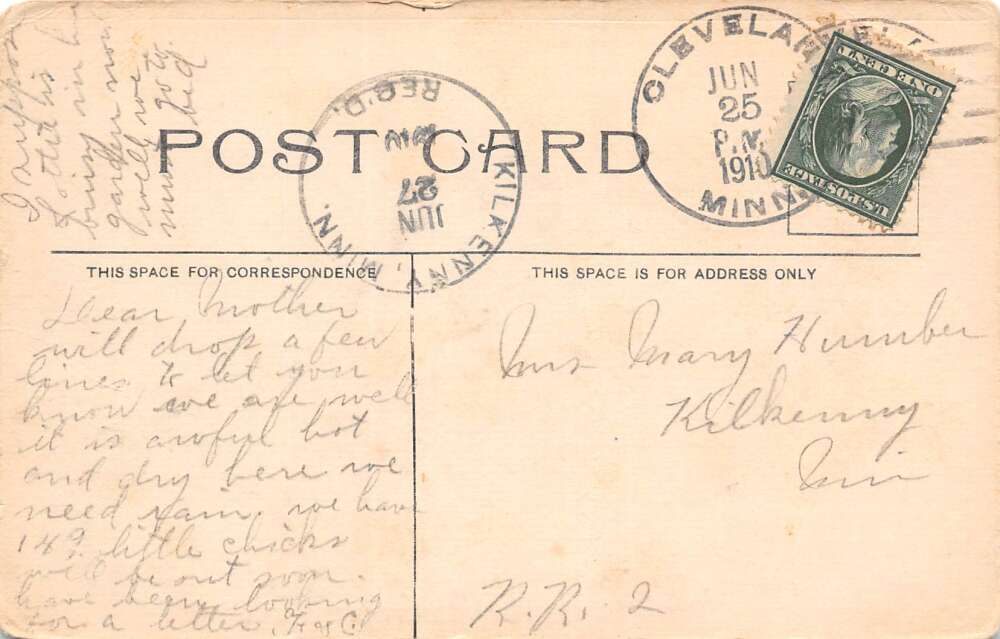 I suppose
Lottie is
busy in her
garden now
well we
must go to
bed
POST CARD
CLEVELAND
JUN
25
P.M.
1910
MINN.
KILKENNY, MINN.
JUN
27
1910
REC'D.
U.S. POSTAGE
ONE CENT
THIS SPACE FOR CORRESPONDENCE
THIS SPACE IS FOR ADDRESS ONLY
Dear Mother
will drop a few
lines to let you
know we are well
it is awful hot
and dry here we
need rain. we have
149 little chicks
will be out soon.
have been looking
for a letter.
Mrs Mary Humber
Kilkenny
Min
R.R. 2